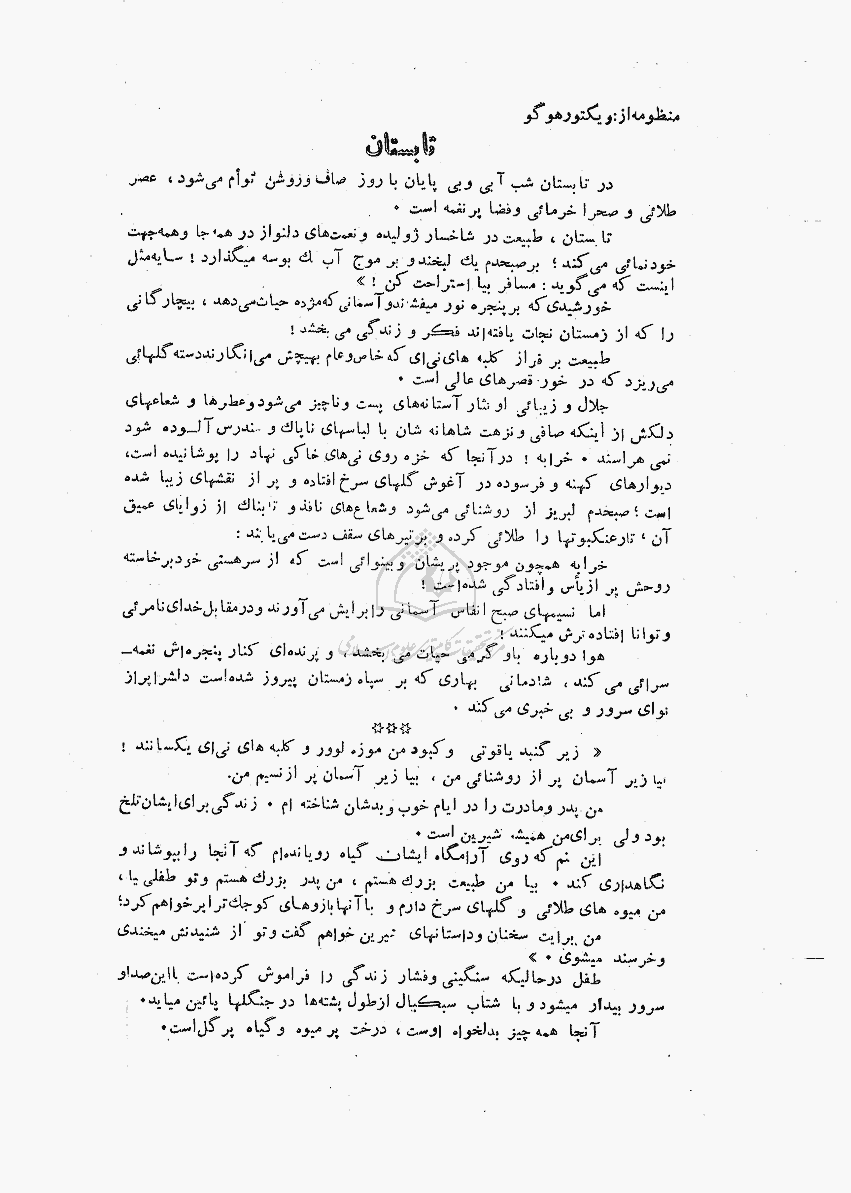 منظومه از: ویکتور هوگو
تابستان
در تابستان شب آبی و بی پایان با روز صاف و روشن توأم می‌شود، عصر
طلائی و صحرا خرمائی و فضا پر نغمه است .
تابستان ، طبیعت در شاخسار ژولیده و نعمت‌های دلنواز در همه جا و همه جهت
خودنمائی می‌کند؛ بر صبحدم یك لبخند و بر موج آب یك بوسه میگذارد ! سایه مثل
اینست که می‌گوید : مسافر بیا استراحت کن ! »
خورشیدی که بر پنجره نور میفشاند و آسمانی که مژده حیات می‌دهد ، بیچارگانی
را که از زمستان نجات یافته‌اند فکر و زندگی می بخشد !
طبیعت بر فراز کلبه های نی‌ای که خاص و عام بهیچش می‌انگارند دسته گلهائی
می‌ریزد که در خور قصرهای عالی است .
جلال و زیبائی او نثار آستانه‌های پست و ناچیز می‌شود و عطرها و شعاعهای
دلکش از اینکه صافی و نزهت شاهانه شان با لباسهای ناپاك و مندرس آلــوده شود
نمی هراسند . خرابه ! در آنجا که خزه روی نی‌های خاکی نهاد را پوشانیده است،
دیوارهای کهنه و فرسوده در آغوش گلهای سرخ افتاده و پر از نقشهای زیبا شده
است ؛ صبحدم لبریز از روشنائی می‌شود و شعاع‌های نافذ و تابناك از زوایای عمیق
آن ، تار عنکبوتها را طلائی کرده و بر تیرهای سقف دست می‌یابند :
خرابه همچون موجود پریشان و بینوائی است که از سر هستی خود برخاسته
روحش پر از یأس و افتادگی شده است !
اما نسیمهای صبح انفاس آسمانی را برایش می‌آورند و در مقابل خدای نامرئی
و توانا افتاده ترش میکنند !
هوا دوباره باو گرمی حیات می بخشد ، و پرنده‌ای کنار پنجره‌اش نغمه‌ــ
سرائی می کند ، شادمانی بهاری که بر سپاه زمستان پیروز شده است دلش را پر از
نوای سرور و بی خبری می‌کند .
☆☆☆
« زیر گنبد یاقوتی و کبود من موزه لوور و کلبه های نی‌ای یکسانند !
بیا زیر آسمان پر از روشنائی من ، بیا زیر آسمان پر از نسیم من.
من پدر و مادرت را در ایام خوب و بدشان شناخته ام . زندگی برای ایشان تلخ
بود ولی برای من همیشه شیرین است .
این منم که روی آرامگاه ایشان گیاه رویانده‌ام که آنجا را بپوشاند و
نگاهداری کند . بیا من طبیعت بزرگ هستم ، من پدر بزرگ هستم و تو طفلی یا ،
من میوه های طلائی و گلهای سرخ دارم و با آنها بازوهای کوچك ترا پر خواهم کرد؛
من برایت سخنان و داستانهای شیرین خواهم گفت و تو از شنیدنش میخندی
و خرسند میشوی . »
طفل در حالیکه سنگینی و فشار زندگی را فراموش کرده است با این صدا و
سرور بیدار میشود و با شتاب سبکبال از طول پشته‌ها در جنگلها پائین میاید.
آنجا همه چیز بدلخواه اوست ، درخت پر میوه و گیاه پر گل است.